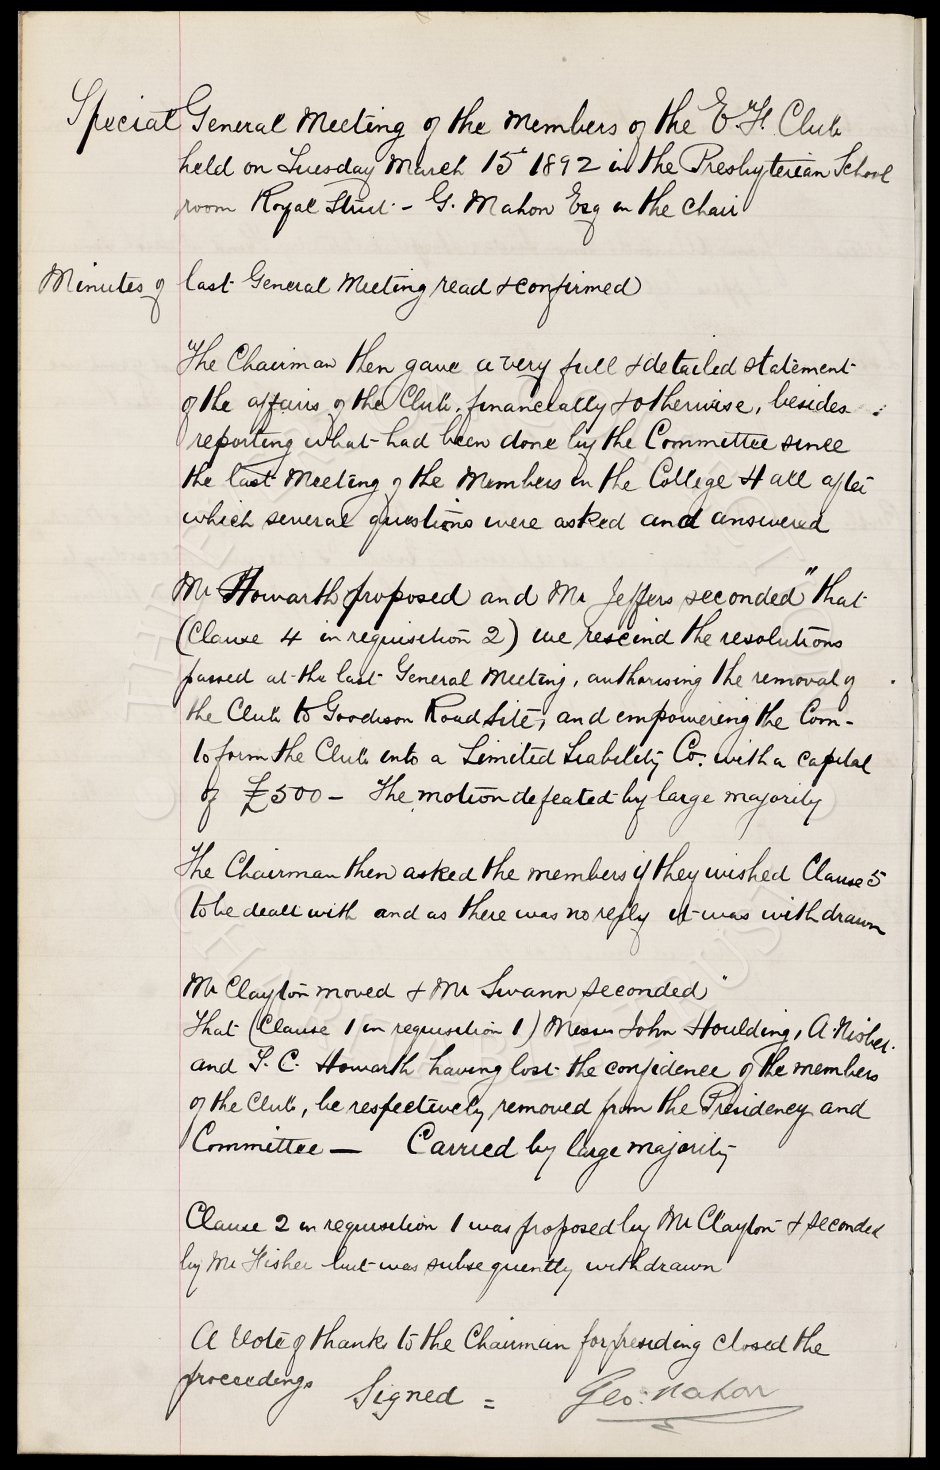 Special General Meeting of the Members of the E. F. Club
held on Tuesday March 15th 1892 in the Presbyterian School
room Royal Street - G. Mahon Esq in the Chair
Minutes of last General Meeting read & confirmed
The Chairman then gave a very full & detailed statement
of the affairs of the Club, financially & otherwise, besides
reporting what had been done by the Committee since
the last Meeting of the Members in the College Hall after
which several questions were asked and answered
Mr Howarth proposed and Mr Jeffers seconded "that
(Clause 4 in requisition 2) we rescind the resolutions
passed at the last General Meeting, authorising the removal of
the Club to Goodison Road Site, and empowering the Com-
to form the Club into a Limited Liability Co. with a capital
of £500 - The motion defeated by large majority
The Chairman then asked the members if they wished Clause 5
to be dealt with and as there was no reply it was withdrawn
Mr Clayton moved & Mr Swann seconded "
That (Clause 1 in requisition 1) Messrs John Houlding, A Nisbet.
and T. C. Howarth having lost the confidence of the members
of the Club, be respectively removed from the Presidency and
Committee — Carried by large majority
Clause 2 in requisition 1 was proposed by Mr Clayton & seconded
by Mr Fisher but was subsequently withdrawn
A Vote of thanks to the Chairman for presiding closed the
proceedings
Signed = Geo: Mahon